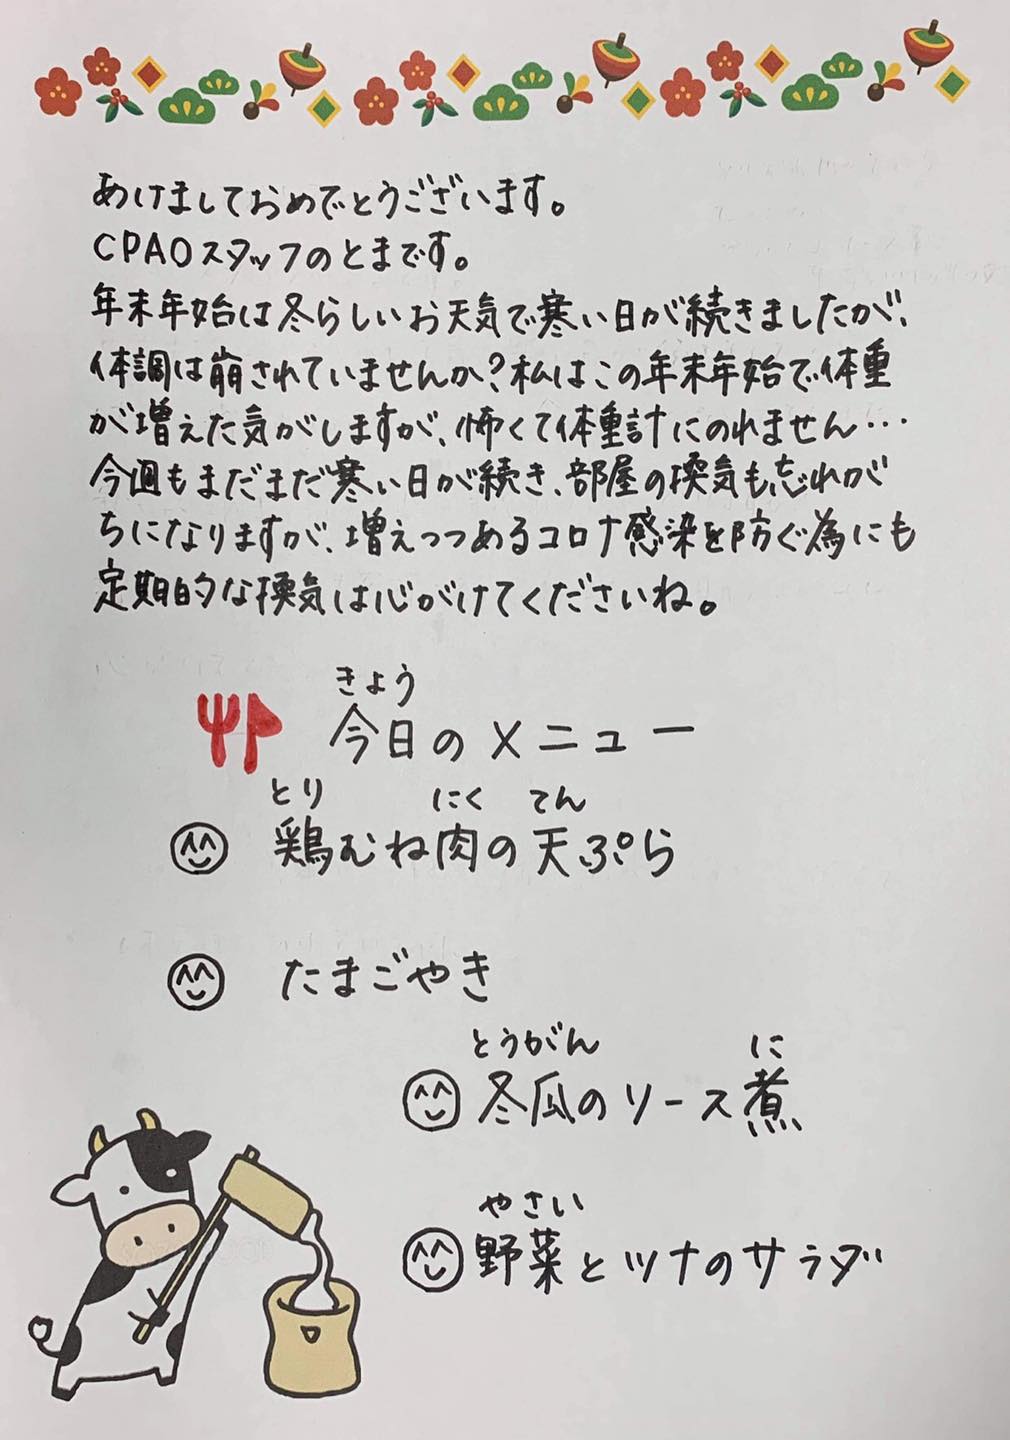 あけましておめでとうございます。
CPAOスタッフのとまです。
年末年始は冬らしいお天気で寒い日が続きましたが、
体調は崩されていませんか?私はこの年末年始で体重
が増えた気がしますが、怖くて体重計にのれません…
今週もまだまだ寒い日が続き、部屋の換気も忘れが
ちになりますが、増えつつあるコロナ感染を防ぐ為にも
定期的な換気は心がけてくださいね。
きょう
今日のメニュー
とり にく てん
鶏むね肉の天ぷら
たまごやき
とうがん に
冬瓜のソース煮
やさい
野菜とツナのサラダ